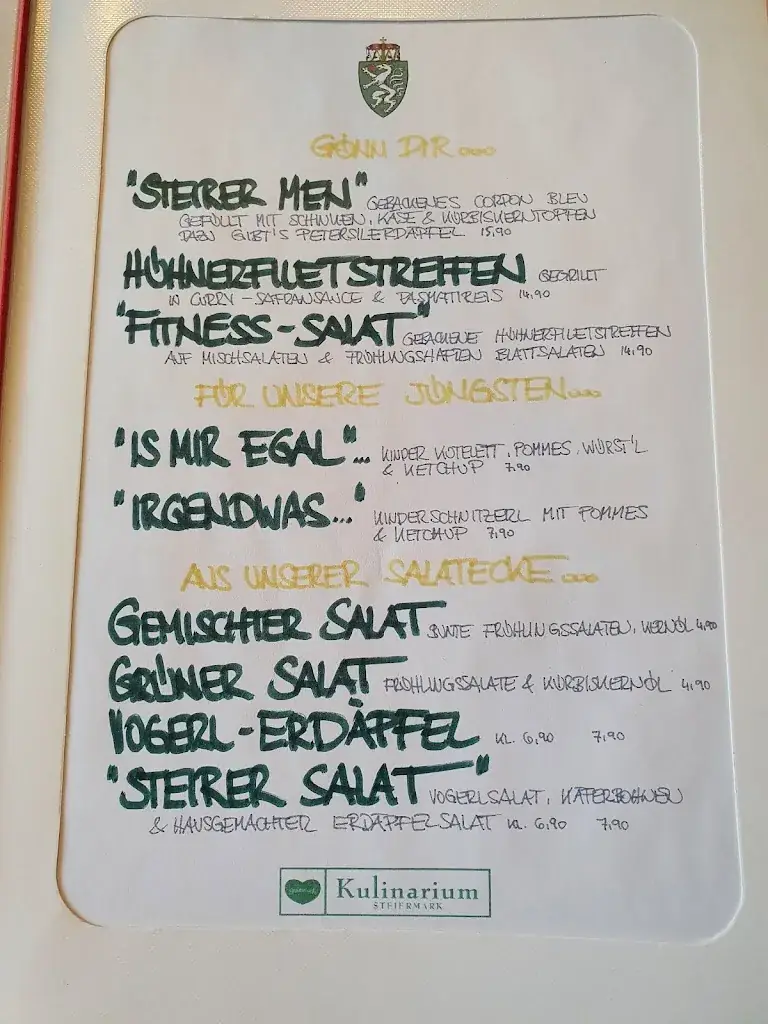 GÖNN DIR...
"STEIRER MEN" GEBACKENES CORDON BLEU
GEFÜLLT MIT SCHINKEN, KÄSE & KÜRBISKERNTOPFEN
DAZU GIBT'S PETERSILERDÄPFEL 15,90
HÜHNERFILETSTREIFEN GEGRILLT
IN CURRY-SAFRANSAUCE & BASMATIREIS 14,90
"FITNESS-SALAT" GEBACKENE HÜHNERFILETSTREIFEN
AUF MISCHSALATEN & FRÜHLINGSHAFTEN BLATTSALATEN 14,90
FÜR UNSERE JÜNGSTEN...
"IS MIR EGAL"... KINDER KOTELETT, POMMES, WÜRST'L
& KETCHUP 7,90
"IRGENDWAS..." KINDERSCHNITZERL MIT POMMES
& KETCHUP 7,90
AUS UNSERER SALATECKE...
GEMISCHTER SALAT BUNTE FRÜHLINGSSALATEN, KERNÖL 4,90
GRÜNER SALAT FRÜHLINGSSALATE & KÜRBISKERNÖL 4,90
VOGERL-ERDÄPFEL KL. 6,90 7,90
"STEIRER SALAT" VOGERLSALAT, KÄFERBOHNEN
& HAUSGEMACHTER ERDÄPFELSALAT KL. 6,90 7,90
Kulinarium
STEIERMARK